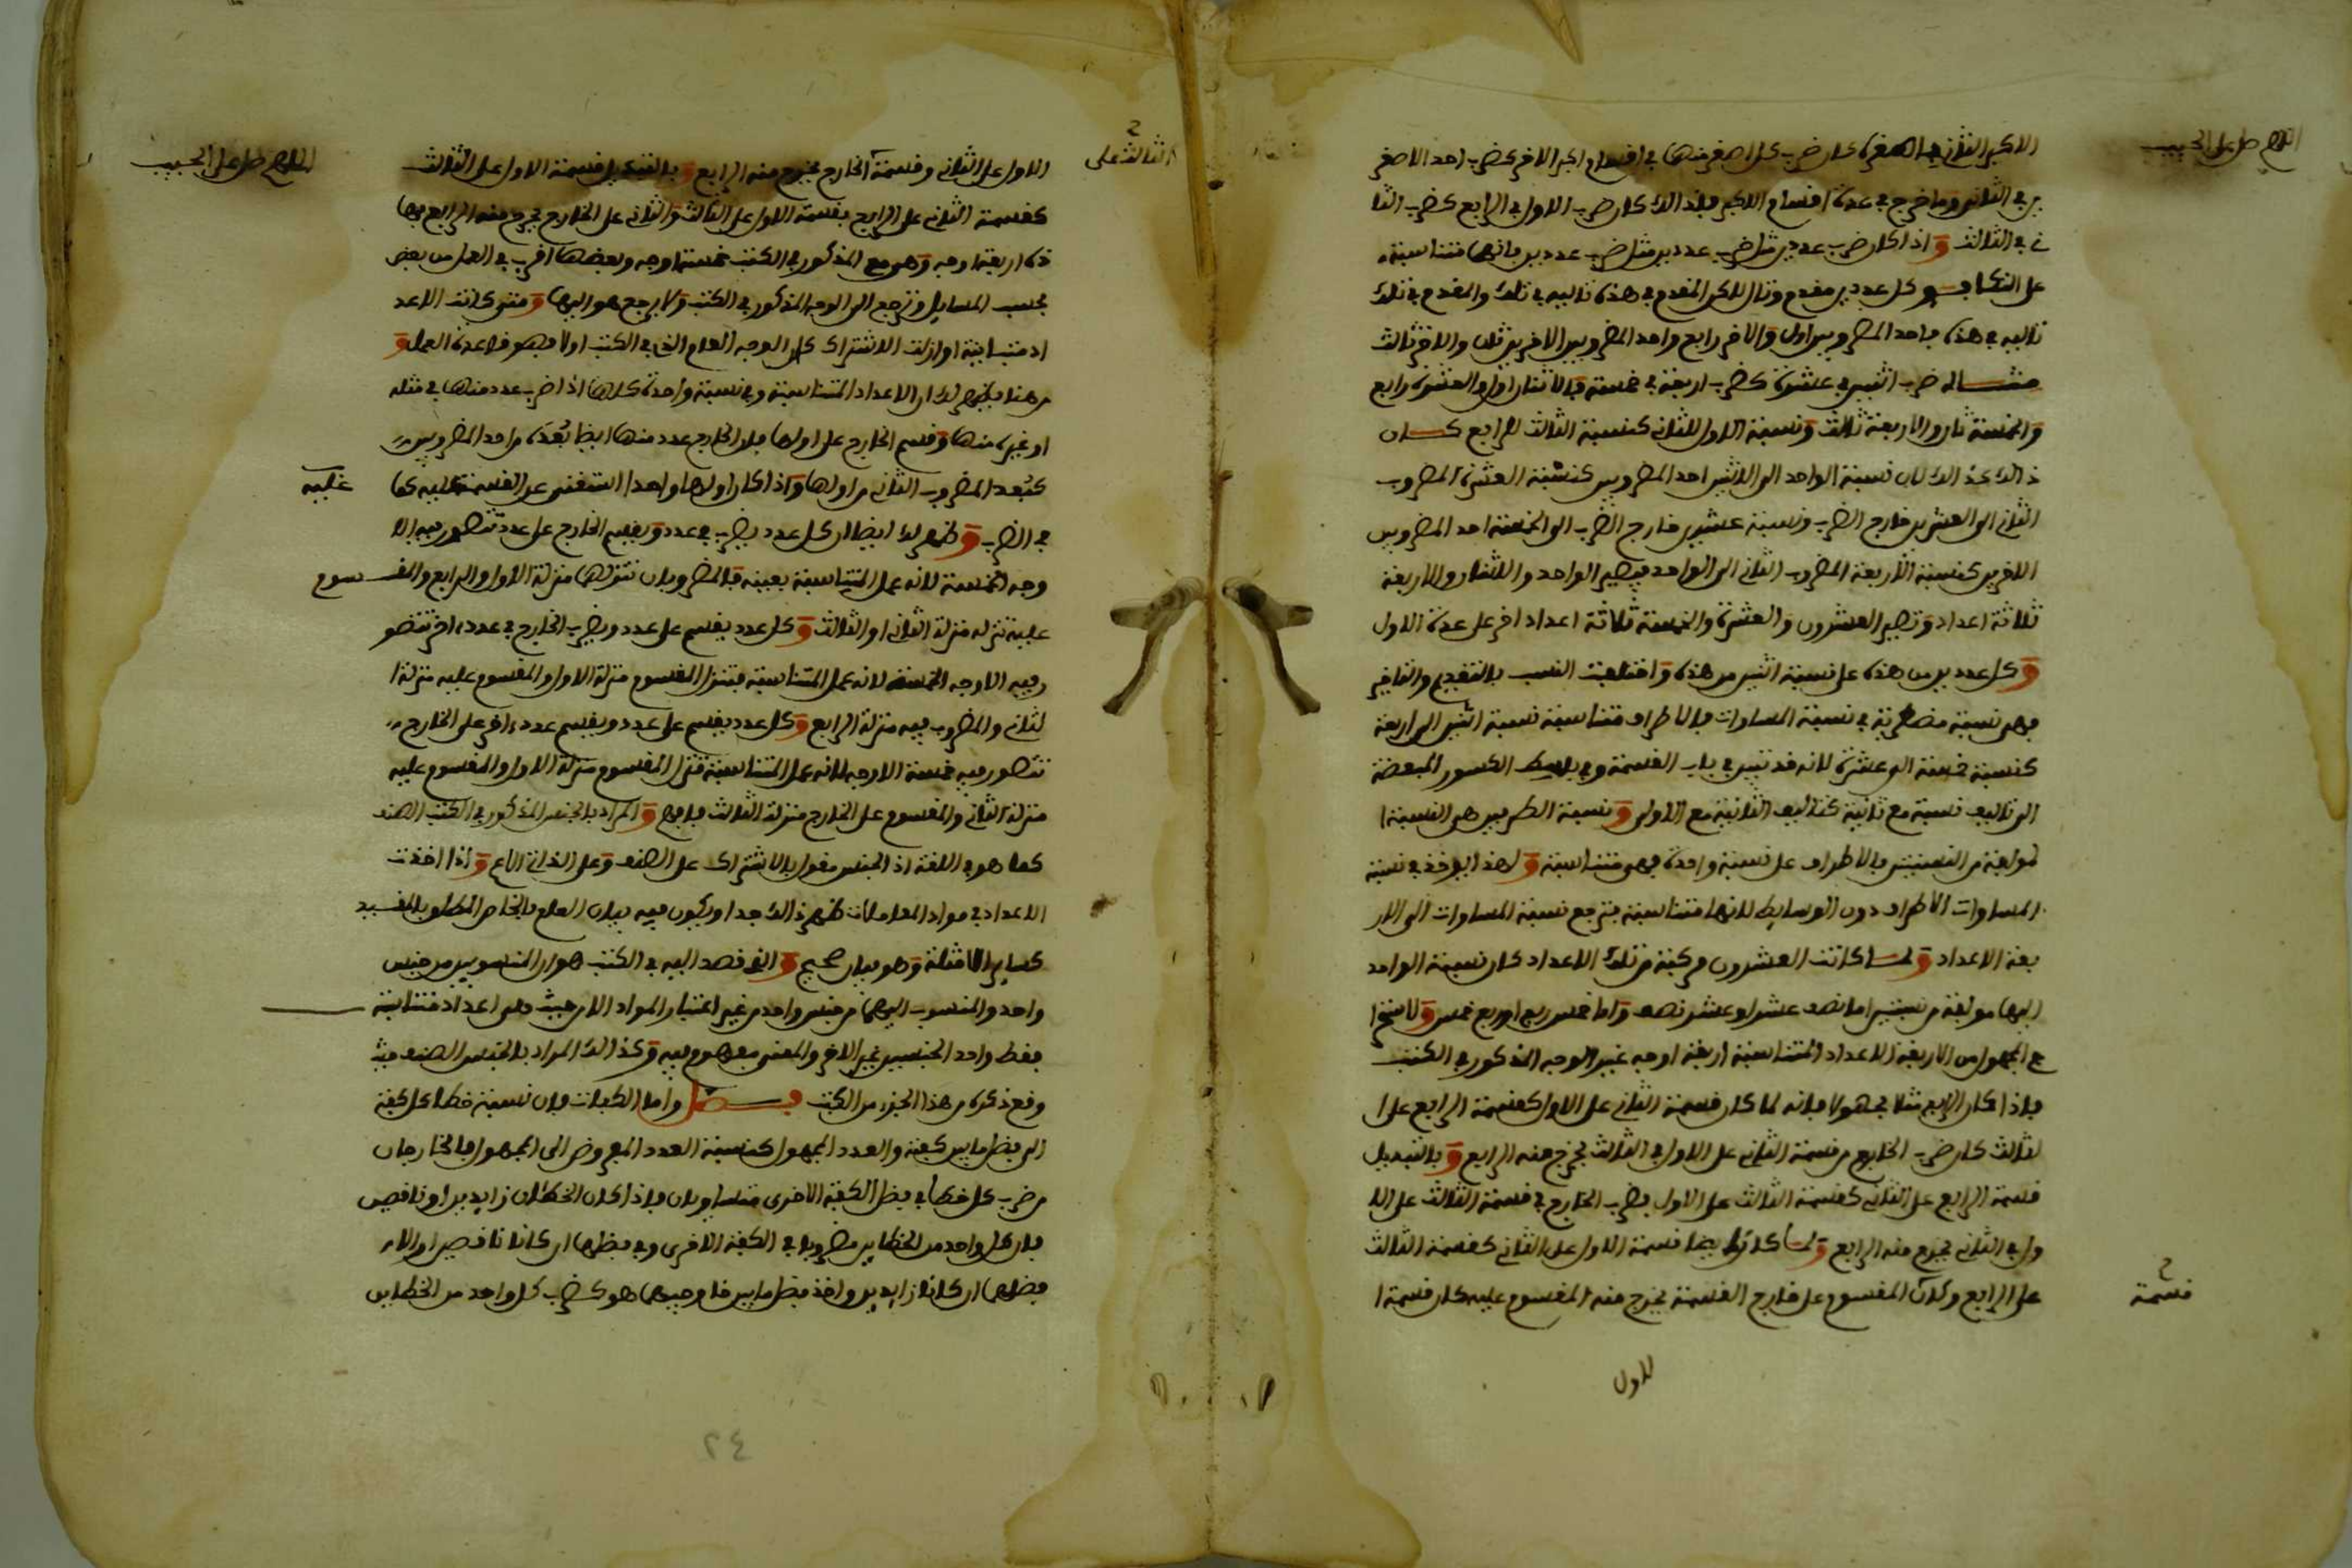 اللهم صل على الحبيب
الاكبر الثاني كان ضرب كل اصغر منهما في اقسام اكبر الاخر كضرب احد الاصغر
ين في الثاني وما خرج في عدة اقسام الاكبر فلذالك كان ضرب الاول في الرابع كضرب الثا
ني في الثالث واذا كان ضرب عددين مثل ضرب عددين فانهما متناسبة
على التكافو كل عددين مقدم وتال للاكن المقدم في هذه تاليه في تلك والمقدم في تلك
تاليه في هذه فاحد المضروبين اول والاخر رابع واحد المضروبين الاخرين ثان والاخر ثالث
مثاله ضرب اثنين في عشرة كضرب اربعة في خمسة فالاثنان اول والعشرة رابع
والخمسة ثان والاربعة ثالث ونسبة الاول للثاني كنسبة الثالث للرابع كان
ذالك كذالك لان نسبة الواحد الى الاثنين احد المضروبين كنسبة العشرة المضروب
الثاني الى العشرين خارج الضرب ونسبة عشرين خارج الضرب الى الخمسة احد المضروبين
الاخرين كنسبة الاربعة المضروب الثاني الى الواحد فيصير الواحد والاثنان والاربعة
ثلاثة اعداد وتصير العشرون والعشرة والخمسة ثلاثة اعداد اخر على عدة الاول
وكل عددين من هذه على نسبة اثنين من هذه واختلفت النسب بالتقديم والتاخير
فهي نسبة مضطربة في نسبة المساوات فالاطراف متناسبة نسبة اثنين الى اربعة
كنسبة خمسة الى عشرة لانه قد تبين في باب القسمة وفي بسط الكسور المبعضة
ان تاليف نسبة مع ثانية كتاليف الثانية مع الاولى ونسبة الطرفين هي النسبة ا
لمولفة من النسبتين فالاطراف على نسبة واحدة فهي متناسبة ولهذا يوخذ في نسبة
المساوات الاطراف دون الوسايط لانها متناسبة فترجع نسبة المساوات الى الار
بعة الاعداد ولما كانت العشرون مركبة من تلك الاعداد كان نسبة الواحد
اليها مولفة من نسبتين اما نصف عشر او عشر نصف واما خمس ربع او ربع خمس ولاستخرا
ج المجهول من الاربعة الاعداد المتناسبة اربعة اوجه غير الوجه المذكور في الكتب
فاذا كان الرابع مثلا مجهولا فانه لما كان قسمة الثاني على الاول كقسمة الرابع على ا
لثالث كان ضرب الخارج من قسمة الثاني على الاول في الثالث يخرج منه الرابع وبالتبديل
قسمة الرابع على الثاني كقسمة الثالث على الاول بضرب الخارج في قسمة الثالث على الا
ول في الثاني يخرج منه الرابع ولما كان ايضا قسمة الاول على الثاني كقسمة الثالث
على الرابع وكان المقسوم على خارج القسمة يخرج منه المقسوم عليه كان قسمة ا
قسمة
للاول
اللهم صل على الحبيب
الثالث على
الاول على الثاني وقسمة الخارج يخرج منه الرابع وبالتبديل قسمة الاول على الثالث
كقسمة الثاني على الرابع بقسمة الاول على الثالث والثاني على الخارج يخرج منه الرابع فهـ
ذه اربعة اوجه وهي مع المذكور في الكتب خمسة اوجه وبعضها اقرب في العمل من بعض
بحسب المسايل وترجع الى الوجه المذكور في الكتب ولا يرجع هو اليها ومتى كانت الاعد
اد متباينة او ازلت الاشتراك كان الوجه العام الذي في الكتب اولا فهو قاعدة العمل و
من هنا يظهر لك ان الاعداد المتناسبة وفي نسبة واحدة كلها اذا ضرب عدد منها في مثله
او غيره منها وقسم الخارج على اولها فان الخارج عدد منها ايضا بعده من احد المضروبين
كبعد المضروب الثاني من اولها واذا كان اولها واحدا استغنى عن القسمة عليه كما
عليه
في الضرب وظهر لك ايضا ان كل عدد يضرب في عدد ويقسم الخارج على عدد تتصور فيه الا
وجه الخمسة لانه عمل المتناسبة بعينه فالمضروبان تنزلهما منزلة الاول والرابع والمقسوم
عليه تنزله منزلة الثاني او الثالث وكل عدد يقسم على عدد ويضرب الخارج في عدد اخر تتصو
ر فيه الاوجه الخمسة لانه عمل المتناسبة فتنزل المقسوم منزلة الاول والمقسوم عليه منزلة ا
لثاني والمضروب فيه منزلة الرابع وكل عدد يقسم على عدد ويقسم عدد اخر على الخارج
تتصور فيه خمسة الاوجه لانه عمل المتناسبة تنزل المقسوم منزلة الاول والمقسوم عليه
منزلة الثاني والمقسوم على الخارج منزلة الثالث فافهم والمراد بالجنس المذكور في الكتب الصنف
كما هو في اللغة اذ الجنس مقول بالاشتراك على الصنف وعلى الذاتي الاعم واذا اخذت
الاعداد في مواد المعاملات ظهر ذالك جدا ويكون فيه بيان العلم بالخاص المطلوب المفيد
كساير الامثلة وهو بيان صحيح والذي قصد اليه في الكتب هو ان المنسوبين من جنس
واحد والمنسوب اليهما من جنس واحد من غير اعتبار المواد الا من حيث هي اعداد متناسبة
فقط واحد الجنسين غير الاخر والمعنى مفهوم فيه وكذالك المراد بالجنس الصنف حيث
وقع ذكره من هذا الجزء من الكتب فصل واما الكفات فان نسبة خطا كل كفة
الى فضل ما بين كفة والعدد المجهول كنسبة العدد المفروض الى المجهول فالخارجان
من ضرب كل خطا في فضل الكفة الاخرى متساويان فاذا كان الخطئان زايدين او ناقصين
فان كل واحد من الخطاين مضروبا في الكفة الاخرى وفي فضلها ان كانا ناقصين او الا
فضلهما ان كانا زايدين واخذ فضل ما بين خارجيهما هو كضرب كل واحد من الخطاين
٢٤